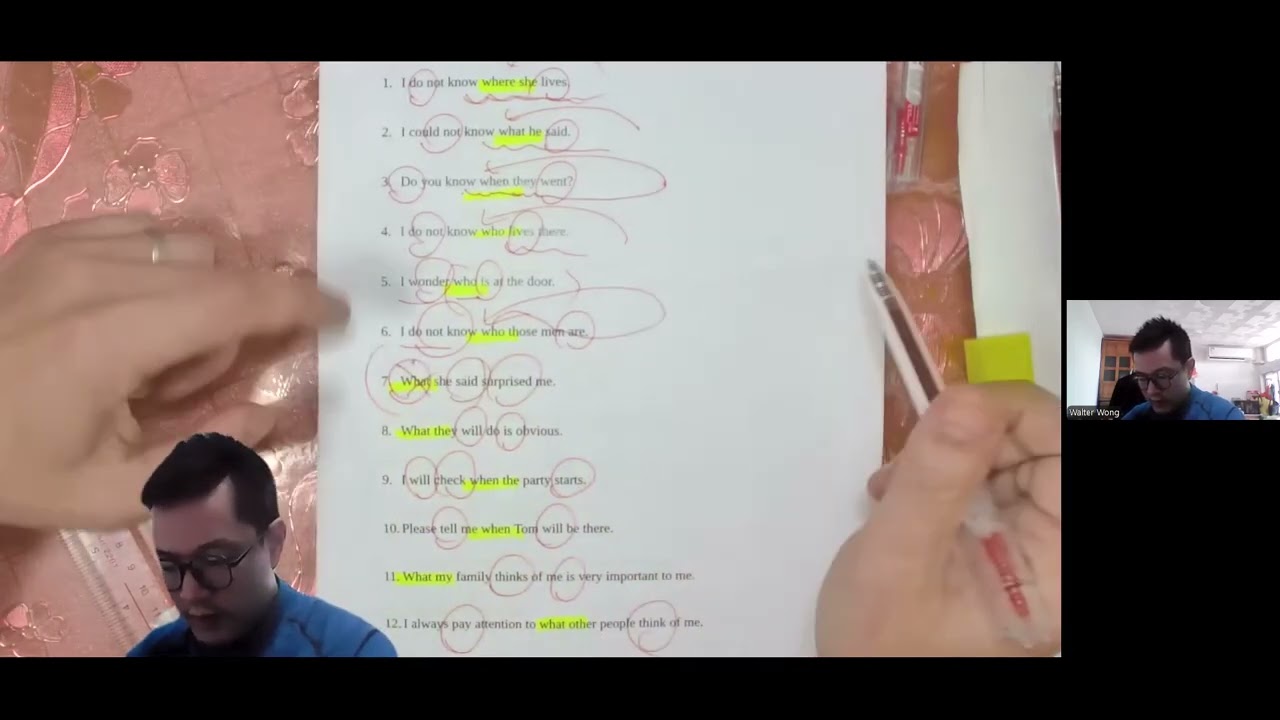 1. I do not know where she lives.
2. I could not know what he said.
3. Do you know when they went?
4. I do not know who lives there.
5. I wonder who is at the door.
6. I do not know who those men are.
7. What she said surprised me.
8. What they will do is obvious.
9. I will check when the party starts.
10. Please tell me when Tom will be there.
11. What my family thinks of me is very important to me.
12. I always pay attention to what other people think of me.
Walter Wong